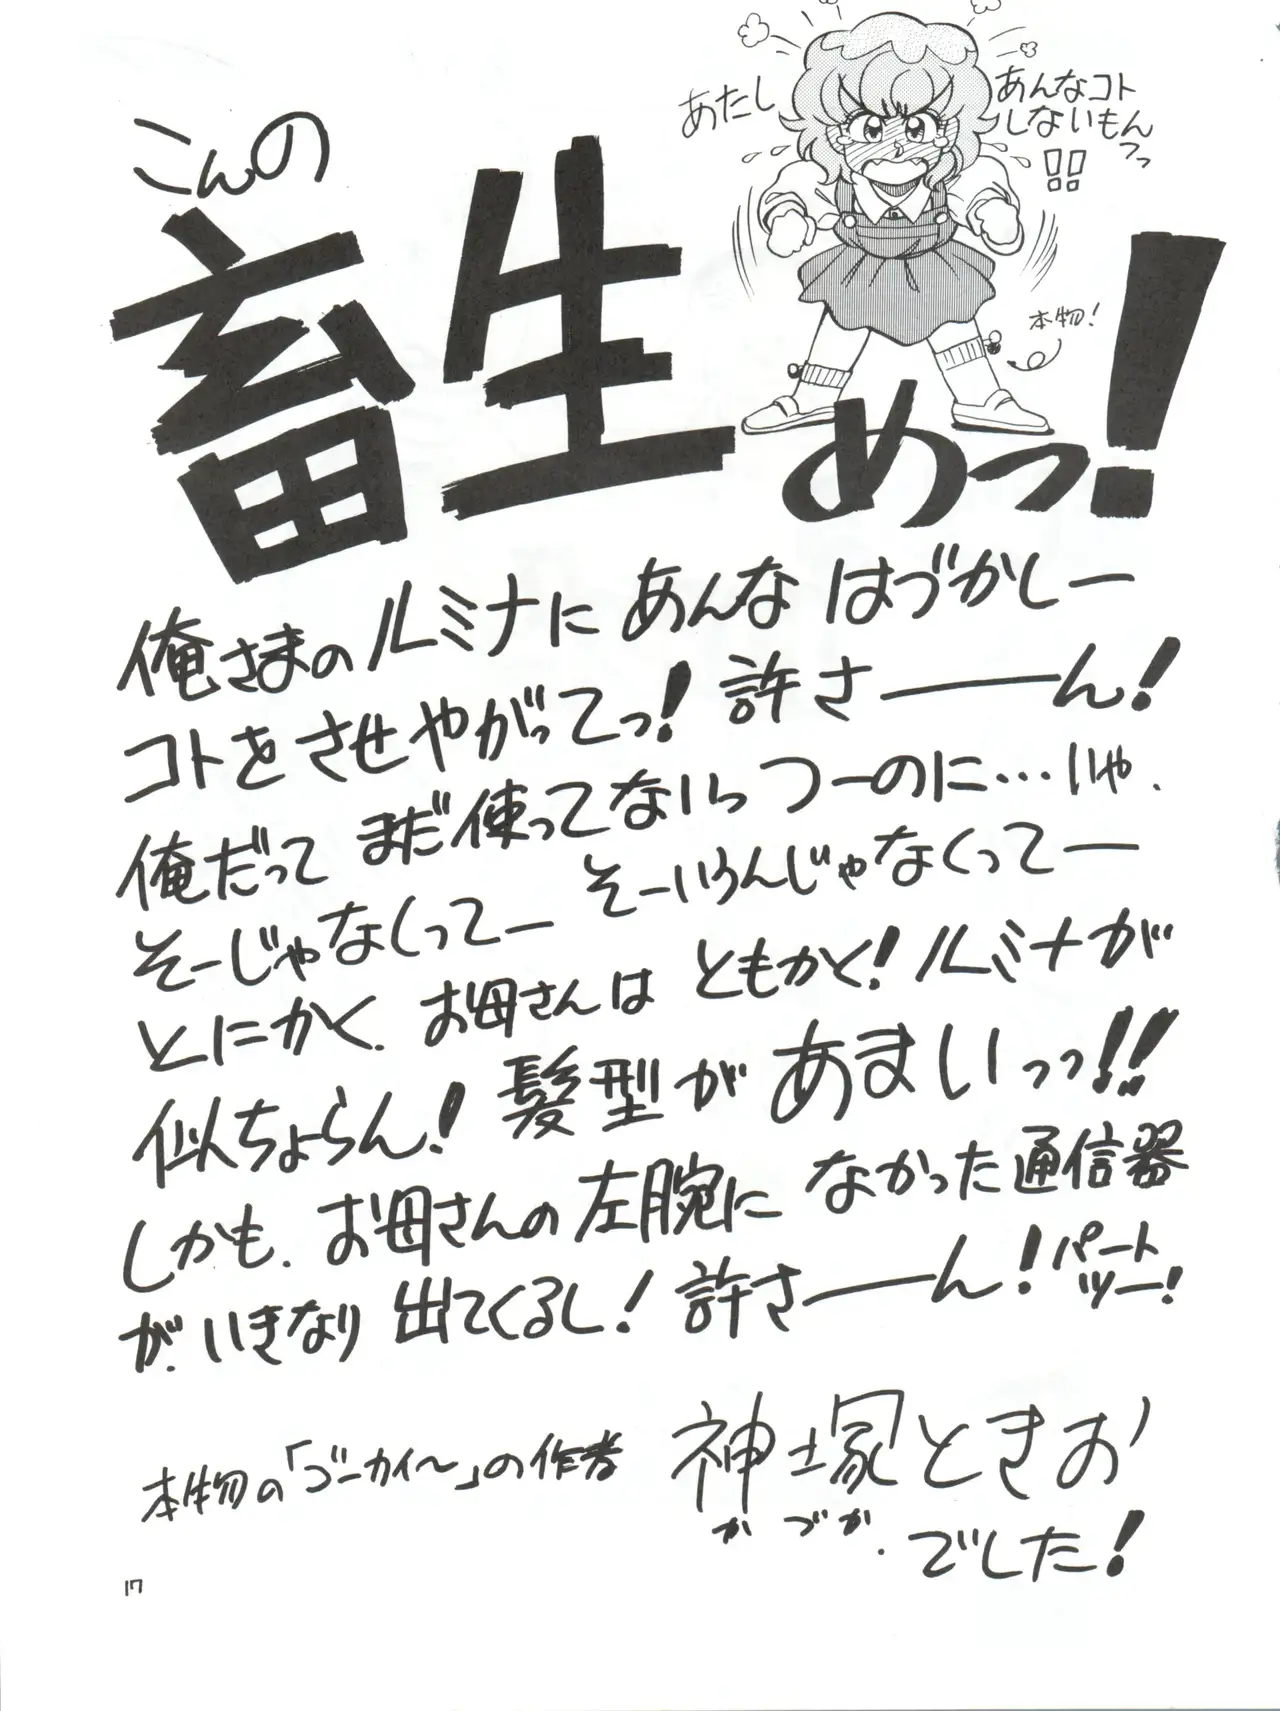 あたし
あんなコト
しないもんっっ
!!
本物!
こんの
畜生めっ!
俺さまのルミナにあんなはづかしー
コトをさせやがってっ!許さーーん!
俺だってまだ使ってないっつーのに…いや、
そーじゃなくってーそーいうんじゃなくってー
とにかく、お母さんはともかく!ルミナが
似ちょらん!髪型があまいっっ!!
しかも、お母さんの左腕になかった通信器
が、いきなり出てくるし!許さーーん!パート
ツー!
本物の「ゴーカイ〜」の作者 神塚ときお
かづか
でした!
17